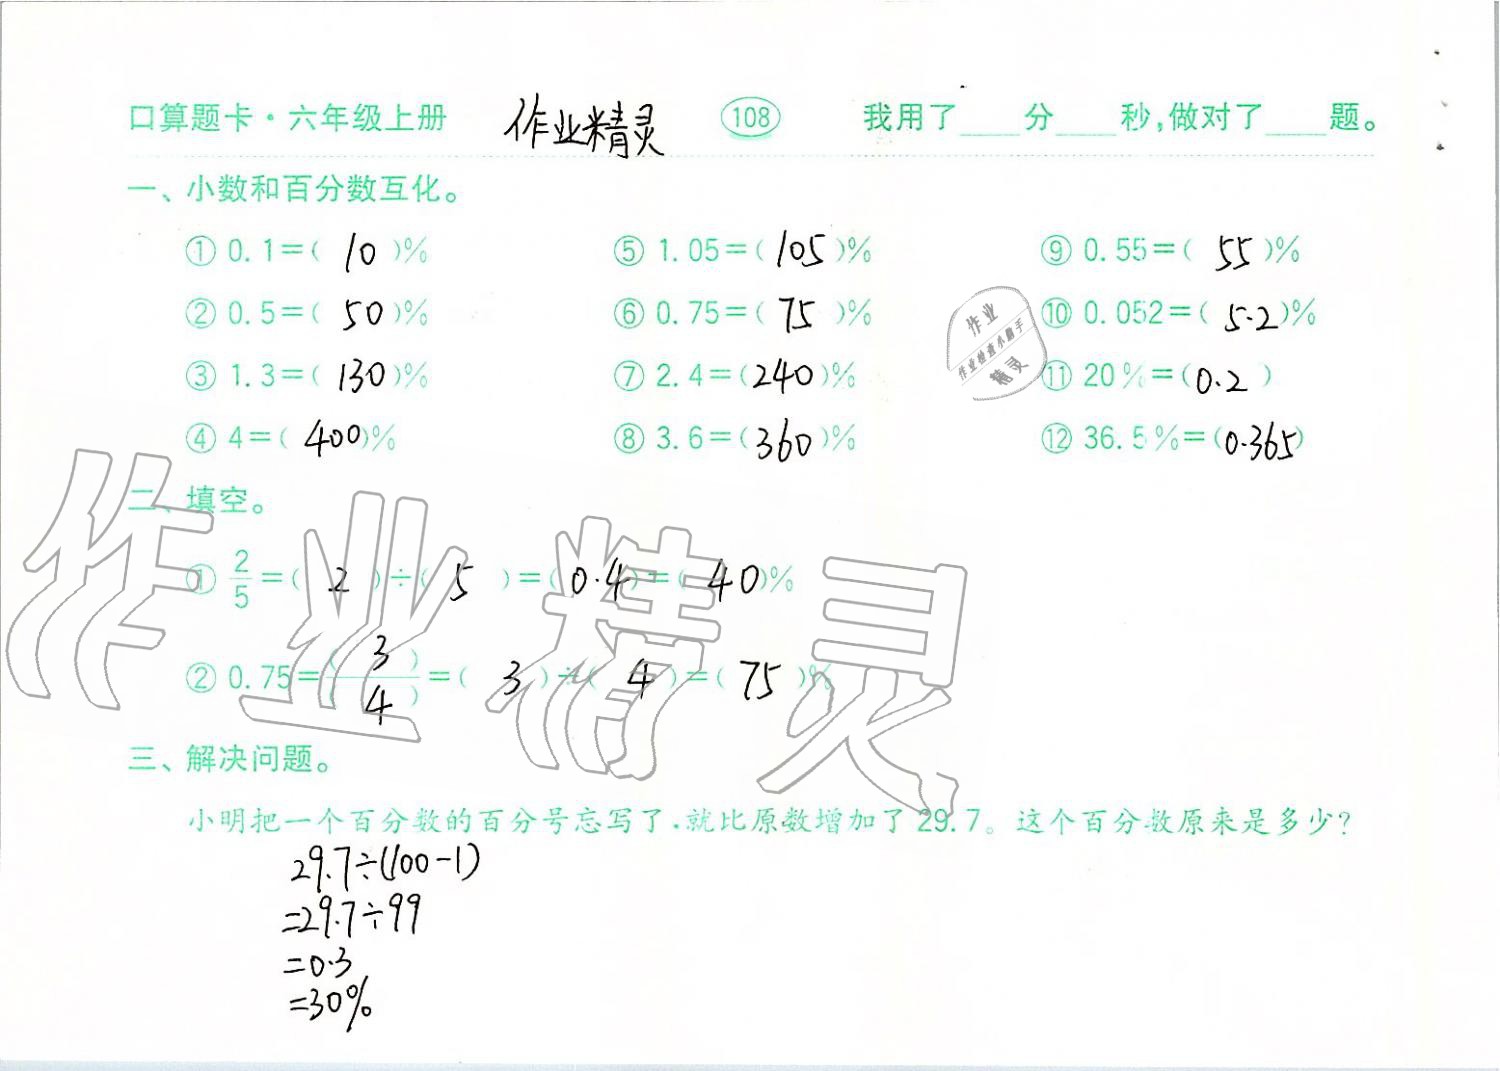 口算题卡·六年级上册 作业精灵 108 我用了____分____秒,做对了____题。
一、小数和百分数互化。
① 0.1=( 10 )% ⑤ 1.05=( 105 )% ⑨ 0.55=( 55 )%
② 0.5=( 50 )% ⑥ 0.75=( 75 )% ⑩ 0.052=( 5.2 )%
③ 1.3=( 130 )% ⑦ 2.4=( 240 )% ⑪ 20%=( 0.2 )
④ 4=( 400 )% ⑧ 3.6=( 360 )% ⑫ 36.5%=( 0.365 )
作业
作业检查小助手
精灵
二、填空。
① 2/5=( 2 )÷( 5 )=( 0.4 )=( 40 )%
② 0.75=( 3 )/( 4 )=( 3 )÷( 4 )=( 75 )%
作业精灵
三、解决问题。
小明把一个百分数的百分号忘写了,就比原数增加了29.7。这个百分数原来是多少?
29.7÷(100-1)
=29.7÷99
=0.3
=30%